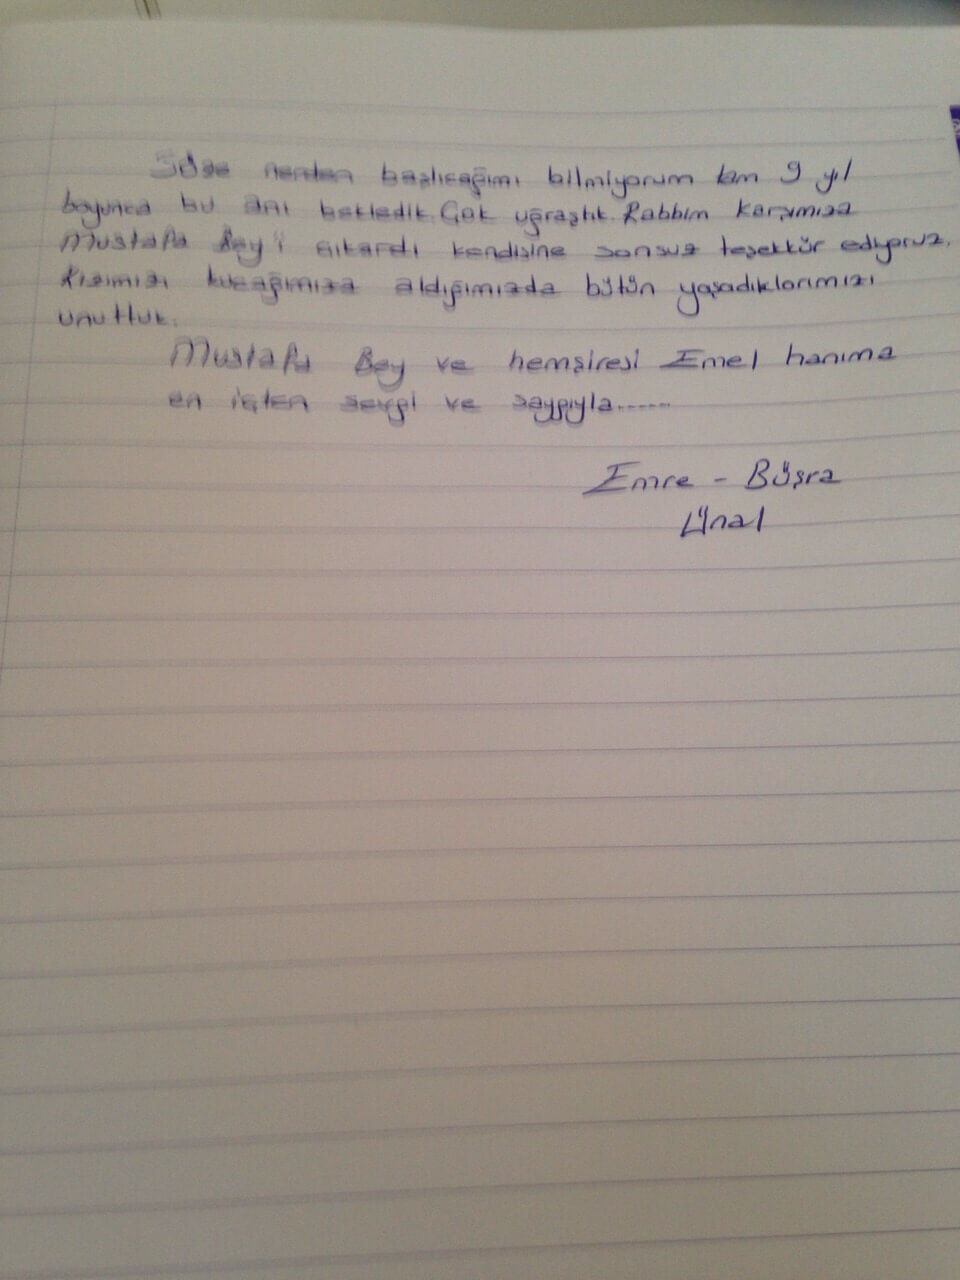 Söze nerden başlıcağımı bilmiyorum tam 9 yıl
boyunca bu anı bekledik. Çok uğraştık Rabbim karşımıza
Mustafa Bey'i çıkardı kendisine sonsuz teşekkür ediyoruz.
Kızımızı kucağımıza aldığımızda bütün yaşadıklarımızı
unuttuk.
Mustafa Bey ve hemşiresi Emel hanıma
en içten sevgi ve saygıyla......
Emre - Büşra
Ünal